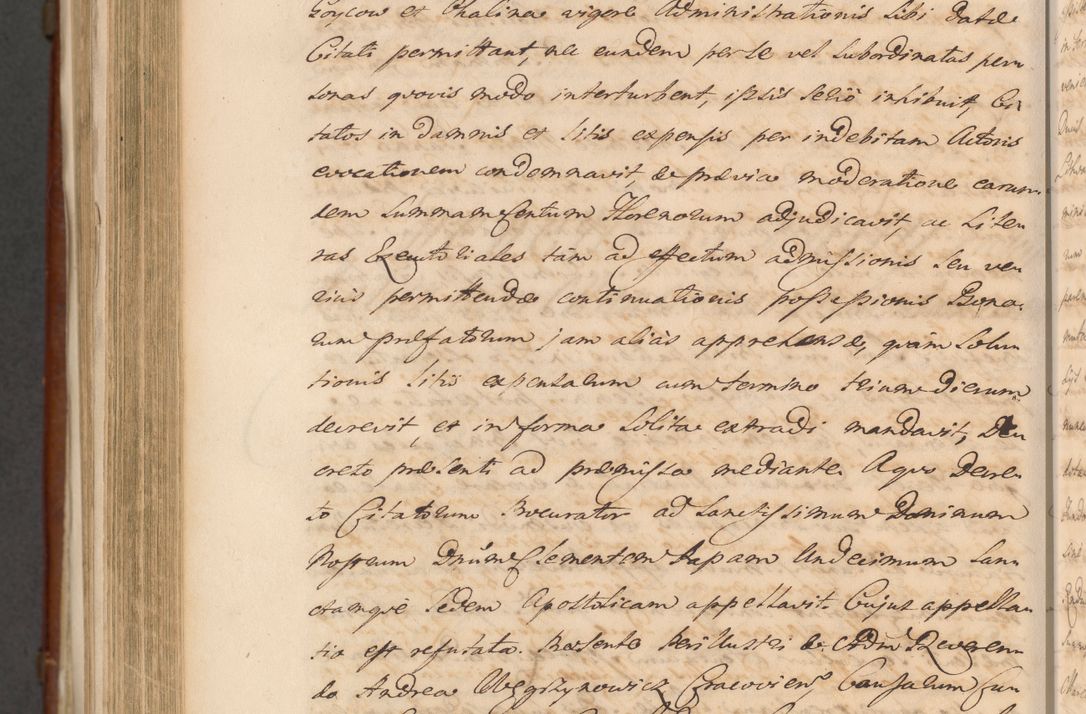 Goycow et Chalinae vigore Administrationis Sibi datae
Citati permittant, nec eundem per se vel Subordinatas per-
sonas quovis modo interturbent, ipsis seriò inhibuit, Ci-
tatos in damnis et litis expensis per indebitam Actoris
evocationem condemnavit, & praevia moderatione earun-
dem Summam Centum Florenorum adjudicavit, ac Lite-
ras Executoriales tàm ad effectum admissionis seu ve-
rius permittendae continuationis possessionis Bono-
rum praefatorum jam aliàs apprehensae, quàm Solu-
tionis litis expensarum cum termino trium dierum
decrevit, et in forma solita extradi mandavit, De-
creto praesenti ad praemissa mediante. A quo Decre-
to Citatorum Procurator ad Sanctissimum Dominum
Nostrum Dnum Clementem Papam Undecimum San-
ctamque Sedem Apostolicam appellavit. Cujus appella-
tio est refutata. Praesente Perillustri & Adm Reveren-
do Andrea Węgrzynowicz Cracovien Causarum Cu-